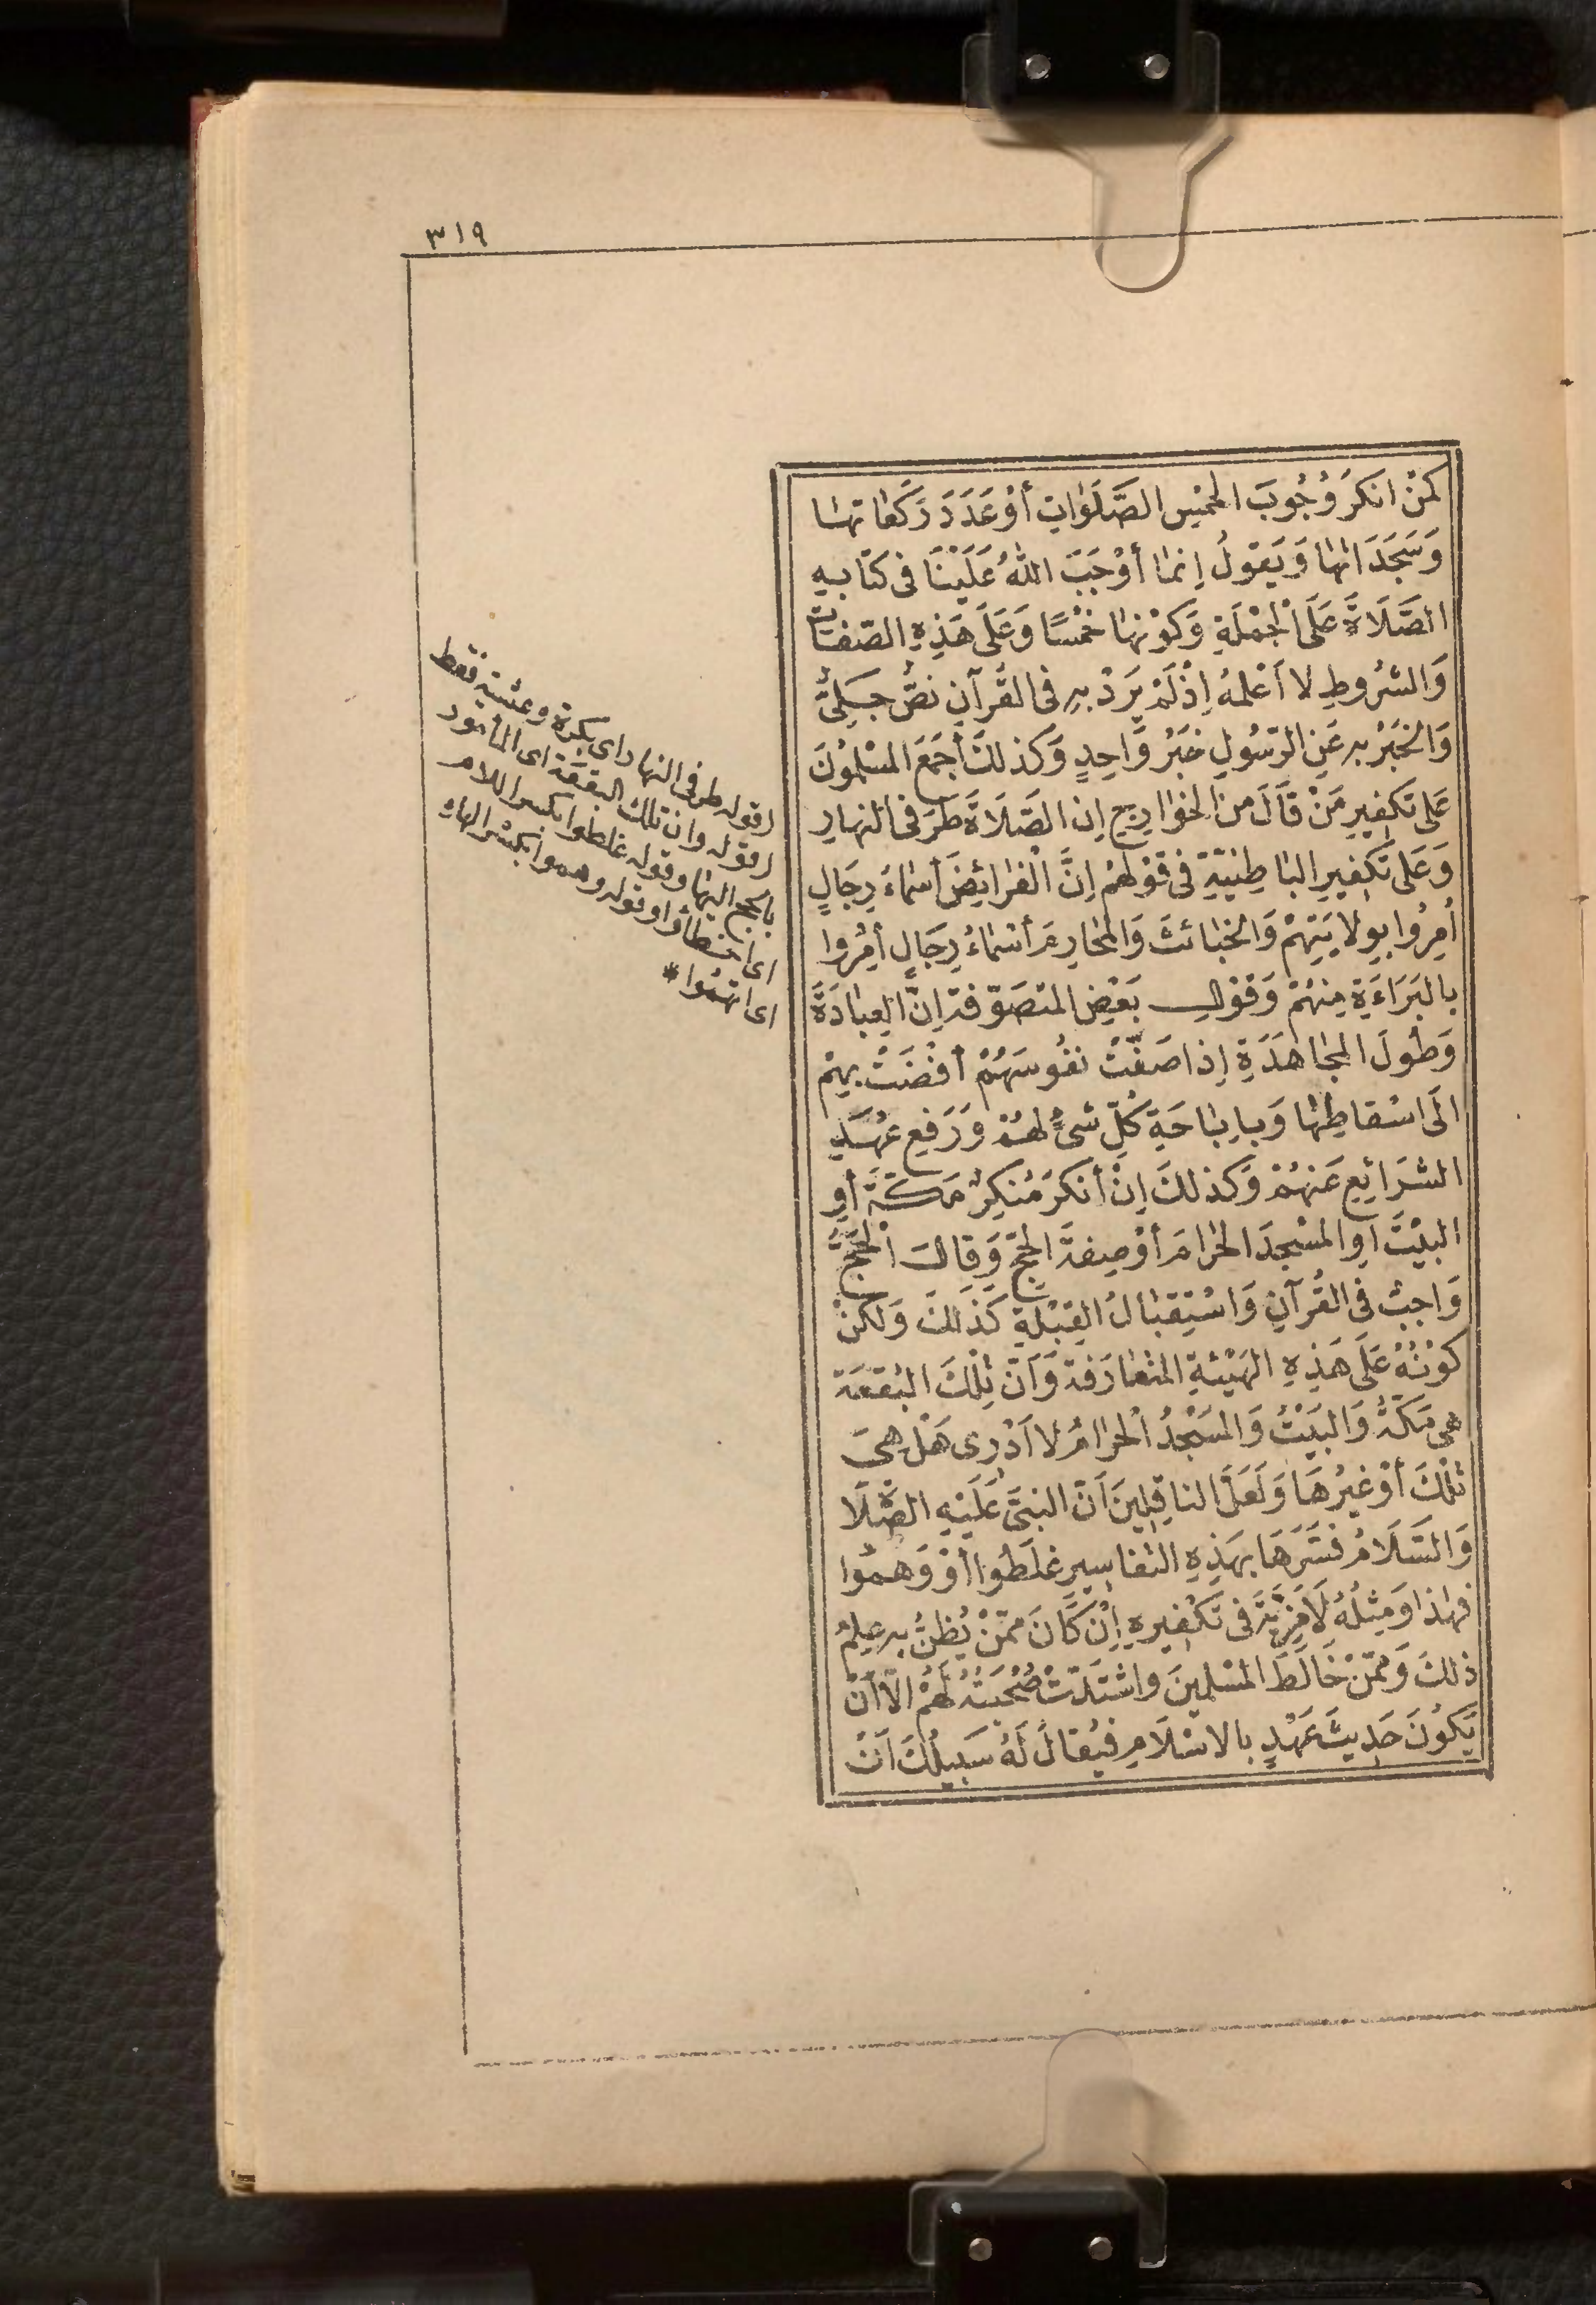 ٣١٩
كَمَنْ انكَرَ وُجُوبَ الخمْسِ الصَّلَوٰاتِ أوْ عَدَدَ رَكَعٰاتهٰا
وَسَجَدَاتهٰا وَيَقولُ إنمٰا أوْجَبَ اللهُ عَلَيْنَا فى كتٰابِهِ
الصَّلَاةَ عَلَى الْجُمْلَةِ وَكَوْنهٰا خَمْسًا وَعَلَى هَذِهِ الصّفَاتِ
وَالشرُوطِ لا أعْلمُهُ إذْ لَمْ يَرِدْ بِهِ فى القُرآنِ نصٌّ جَلِىٌّ
وَالخَبَرُ بهِ عَنِ الرّسُولِ خبَرُ وَاحِدٍ وَكذلكَ أجمَعَ المسْلمُونَ
عَلى تكفِيرِ مَنْ قَالَ منَ الخوٰارِجِ إن الصَّلَاةَ طَرَفى النهارِ
وَعَلى تَكفِيرِ البٰاطِنيّةِ فى قوْلهمْ إنَّ الْفرٰائِضَ أسْمٰاءُ رِجَالٍ
أُمِرُوا بوِلايَتِهمْ وَالخبٰائثَ وَالمحٰارِمَ أسْمٰاءُ رِجَالٍ أمِرُوا
بالبَرَاءَةِ مِنهُمْ وَقوْلِ بَعْضِ المتصَوّفةِ إنَّ العِبٰادَةَ
وَطُولَ المجٰاهَدَةِ إذا صَفّتْ نفُوسَهُمْ أفْضَتْ بهِمْ
الَى اسْقاطِهٰا وَبإبٰاحَةِ كُلِّ شىْءٍ لهمْ وَرَفعِ عُهَدِ
الشرَائعِ عَنهُمْ وَكذلكَ إنْ أنكَرَ مُنكِرٌ مَكّةَ أوِ
البيْتَ اوِ المسْجِدَ الحٰرَامَ أوْ صِفةَ الحجِّ وَقالَ الْحَجُّ
وَاجِبٌ فى القُرآنِ وَاسْتِقبٰالُ القِبْلةِ كَذلكَ وَلكنْ
كوْنُهُ عَلَى هَذِهِ الهَيْئةِ المتعٰارَفةِ وَأنّ تِلْكَ البُقعَةَ
هىَ مَكّةُ وَالبَيْتُ وَالمسْجِدُ الْحرٰامُ لا أدْرِى هَلْ هىَ
تلْكَ أوْ غيْرُهَا وَلَعَلَّ الناقِلينَ أنّ النبىَّ عَلَيْهِ الصَّلَاةُ
وَالسَّلَامُ فسَّرَهَا بهَذِهِ التفاسِيرِ غلَطُوا أوْ وَهِمُوا
فهذا وَمِثلُهُ لَا مِرْيَةَ فى تكفِيرِهِ إنْ كَانَ ممّنْ يُظنُّ بهِ عِلْمُ
ذلكَ وَممّنْ خَالَطَ المسْلِمينَ واشتدّتْ صُحْبَتُهُ لَهُمْ الّا أنْ
يَكُونَ حَدِيثَ عَهْدٍ بالاسْلَامِ فيُقالَ لَهُ سَبيلُكَ أنْ
(قوله طرفى النهار) اى بكرة وعشية فقط
(قوله وان تلك البقعة) اى المأمور
بالحج اليها وقوله غلطوا بكسر اللام
اى اخطأوا وقوله وهموا بكسر الهاء
اى اتهموا *